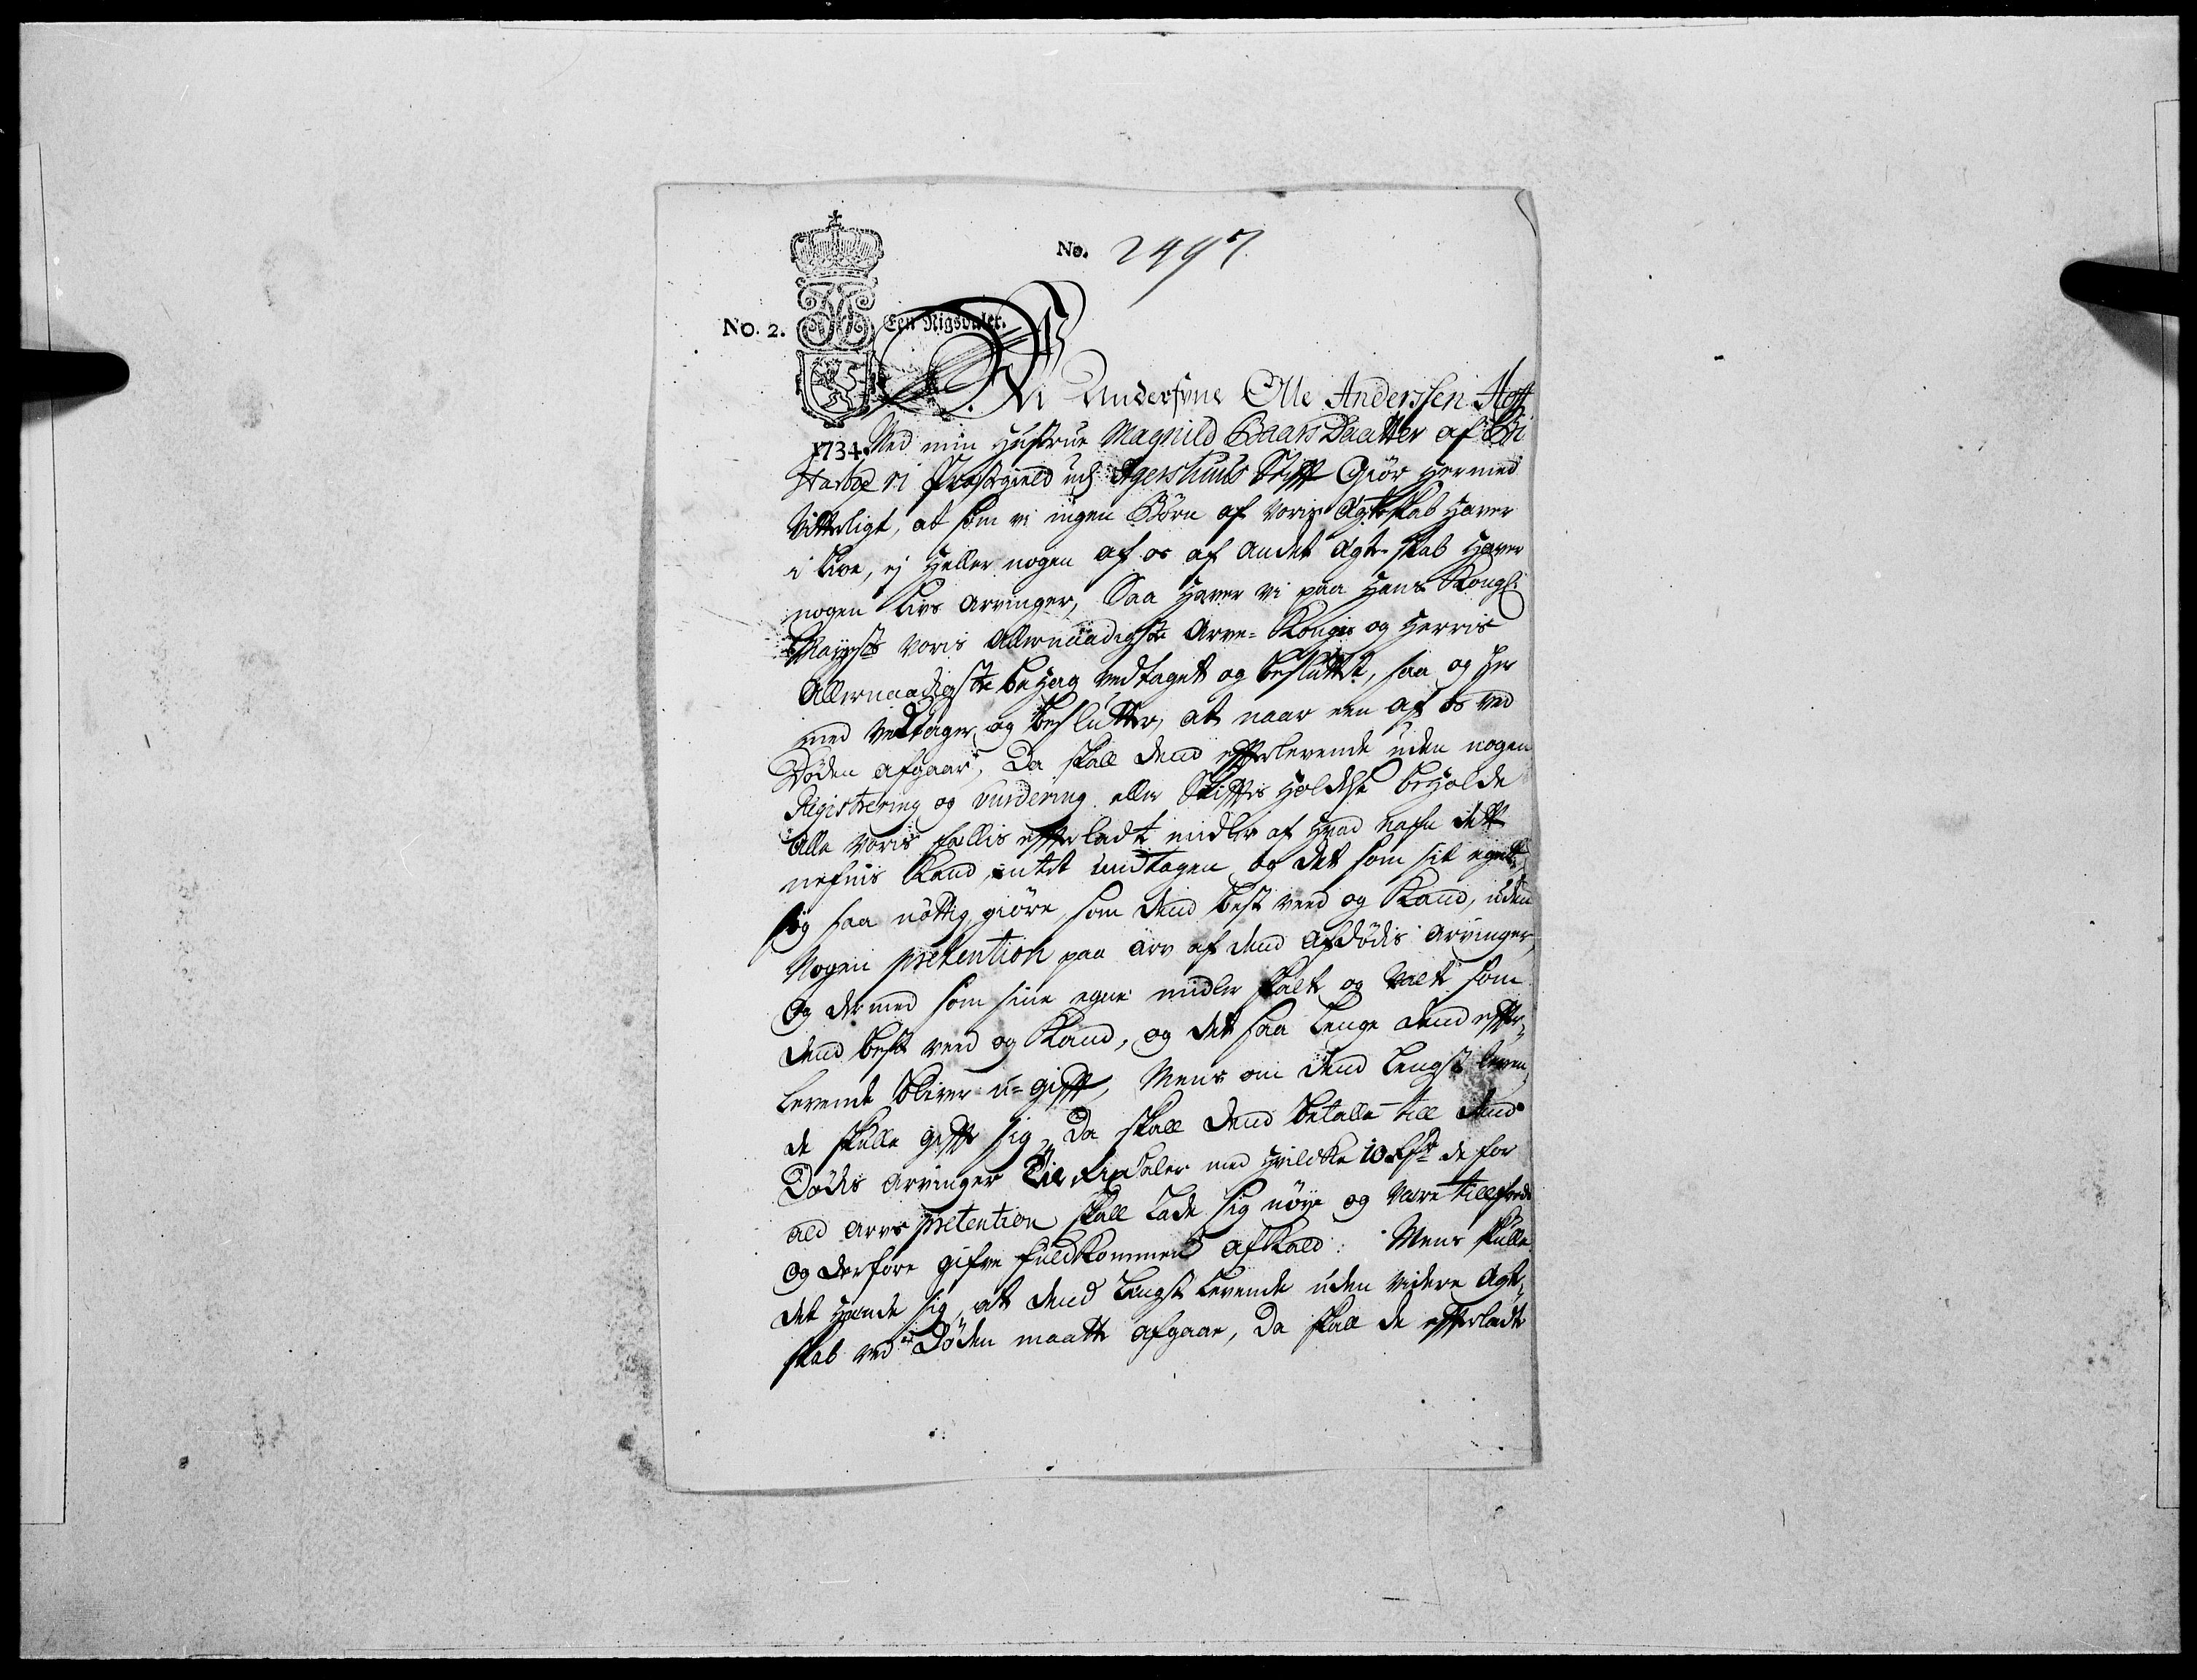 No. 2497
No. 2. Een Rigsdaler.
Vi Underskrevne Olle Anderssen Hoff
1734. Med min Hustrue Magnild Baars Daatter af Bi
Præstegield udj Agershuus Stifft Giør Hermed
Vitterligt, at som vi ingen Børn af voris Ægteskab Haver
i Live, ej Heller nogen af os af andet Ægte-skab Haver
nogen Livs Arvinger, Saa Haver vi paa Hans Kongl:
Mayests voris Allernaadigste Arve-Kongis og Herris
Allernaadigste behag vedtaget og besluttet, saa og Her
med vedtager og beslutter, at naar een af os ved
Døden afgaar, Da skall dend efterlevende uden nogen
Registrering og vurdering eller Skifftis Holdelse beholde
Alle voris fællis efterladte midler af Hvad nafn dett
nefnis Kand, intet undtagen og det som sit eget
sig saa nøttig giøre, som dend best veed og Kand, uden
Nogen prætention paa arv af dend afdødis Arvinger,
Og dermed som sine egne midler skalte og valte som
dend best veed og Kand, og det saa Lenge dend effter-
levende bliver u-gifft, Mens om dend Lengst leven
de skulle giffte sig, Da skall dend betalle till dend
Dødis Arvinger Tie Rixdaler med Hvilcke 10 Rdr de for
ald Arvs prætention skall Lade sig nøye og være tillfreds
og derfore gifve fuldkommen afkald: Mens skulle
det Hænde sig, at dend Lengst Levende uden videre Ægte-
skab ved Døden maatte afgaae, Da skall de effterladte